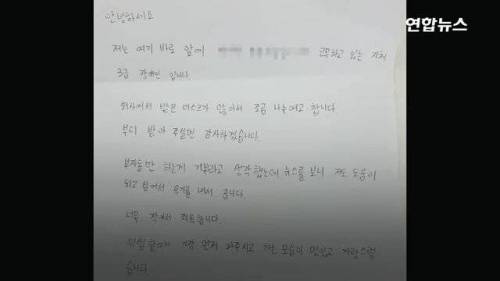 연합뉴스
안녕하세요
저는 여기 바로 앞에 근무하고 있는 지체
3급 장애인 입니다.
회사에서 받은 마스크가 많아서 조금 나누려고 합니다.
부디 받아 주시면 감사하겠습니다.
부자들만 하는게 기부라고 생각했는데 뉴스를 보니 저도 도움이
되고 싶어서 용기를 내서 줍니다.
너무 작아서 죄송합니다.
위험할때 가장 먼저 와주시고 하는 모습이 멋있고 자랑스럽
습니다